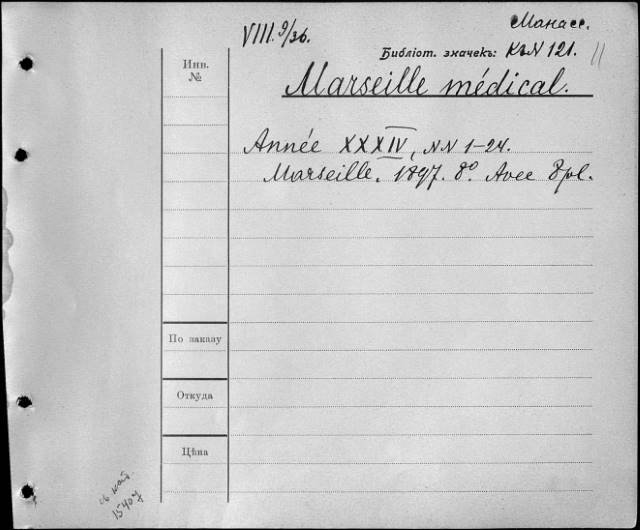 Манасс.
VIII. 9/36.
Библіот. значекъ: КъN 121. 11
Инв.
№
Marseille médical.
Année XXXIV, NN 1-24.
Marseille. 1897. 8º. Avec 8 pl.
По заказу
Откуда
Цѣна